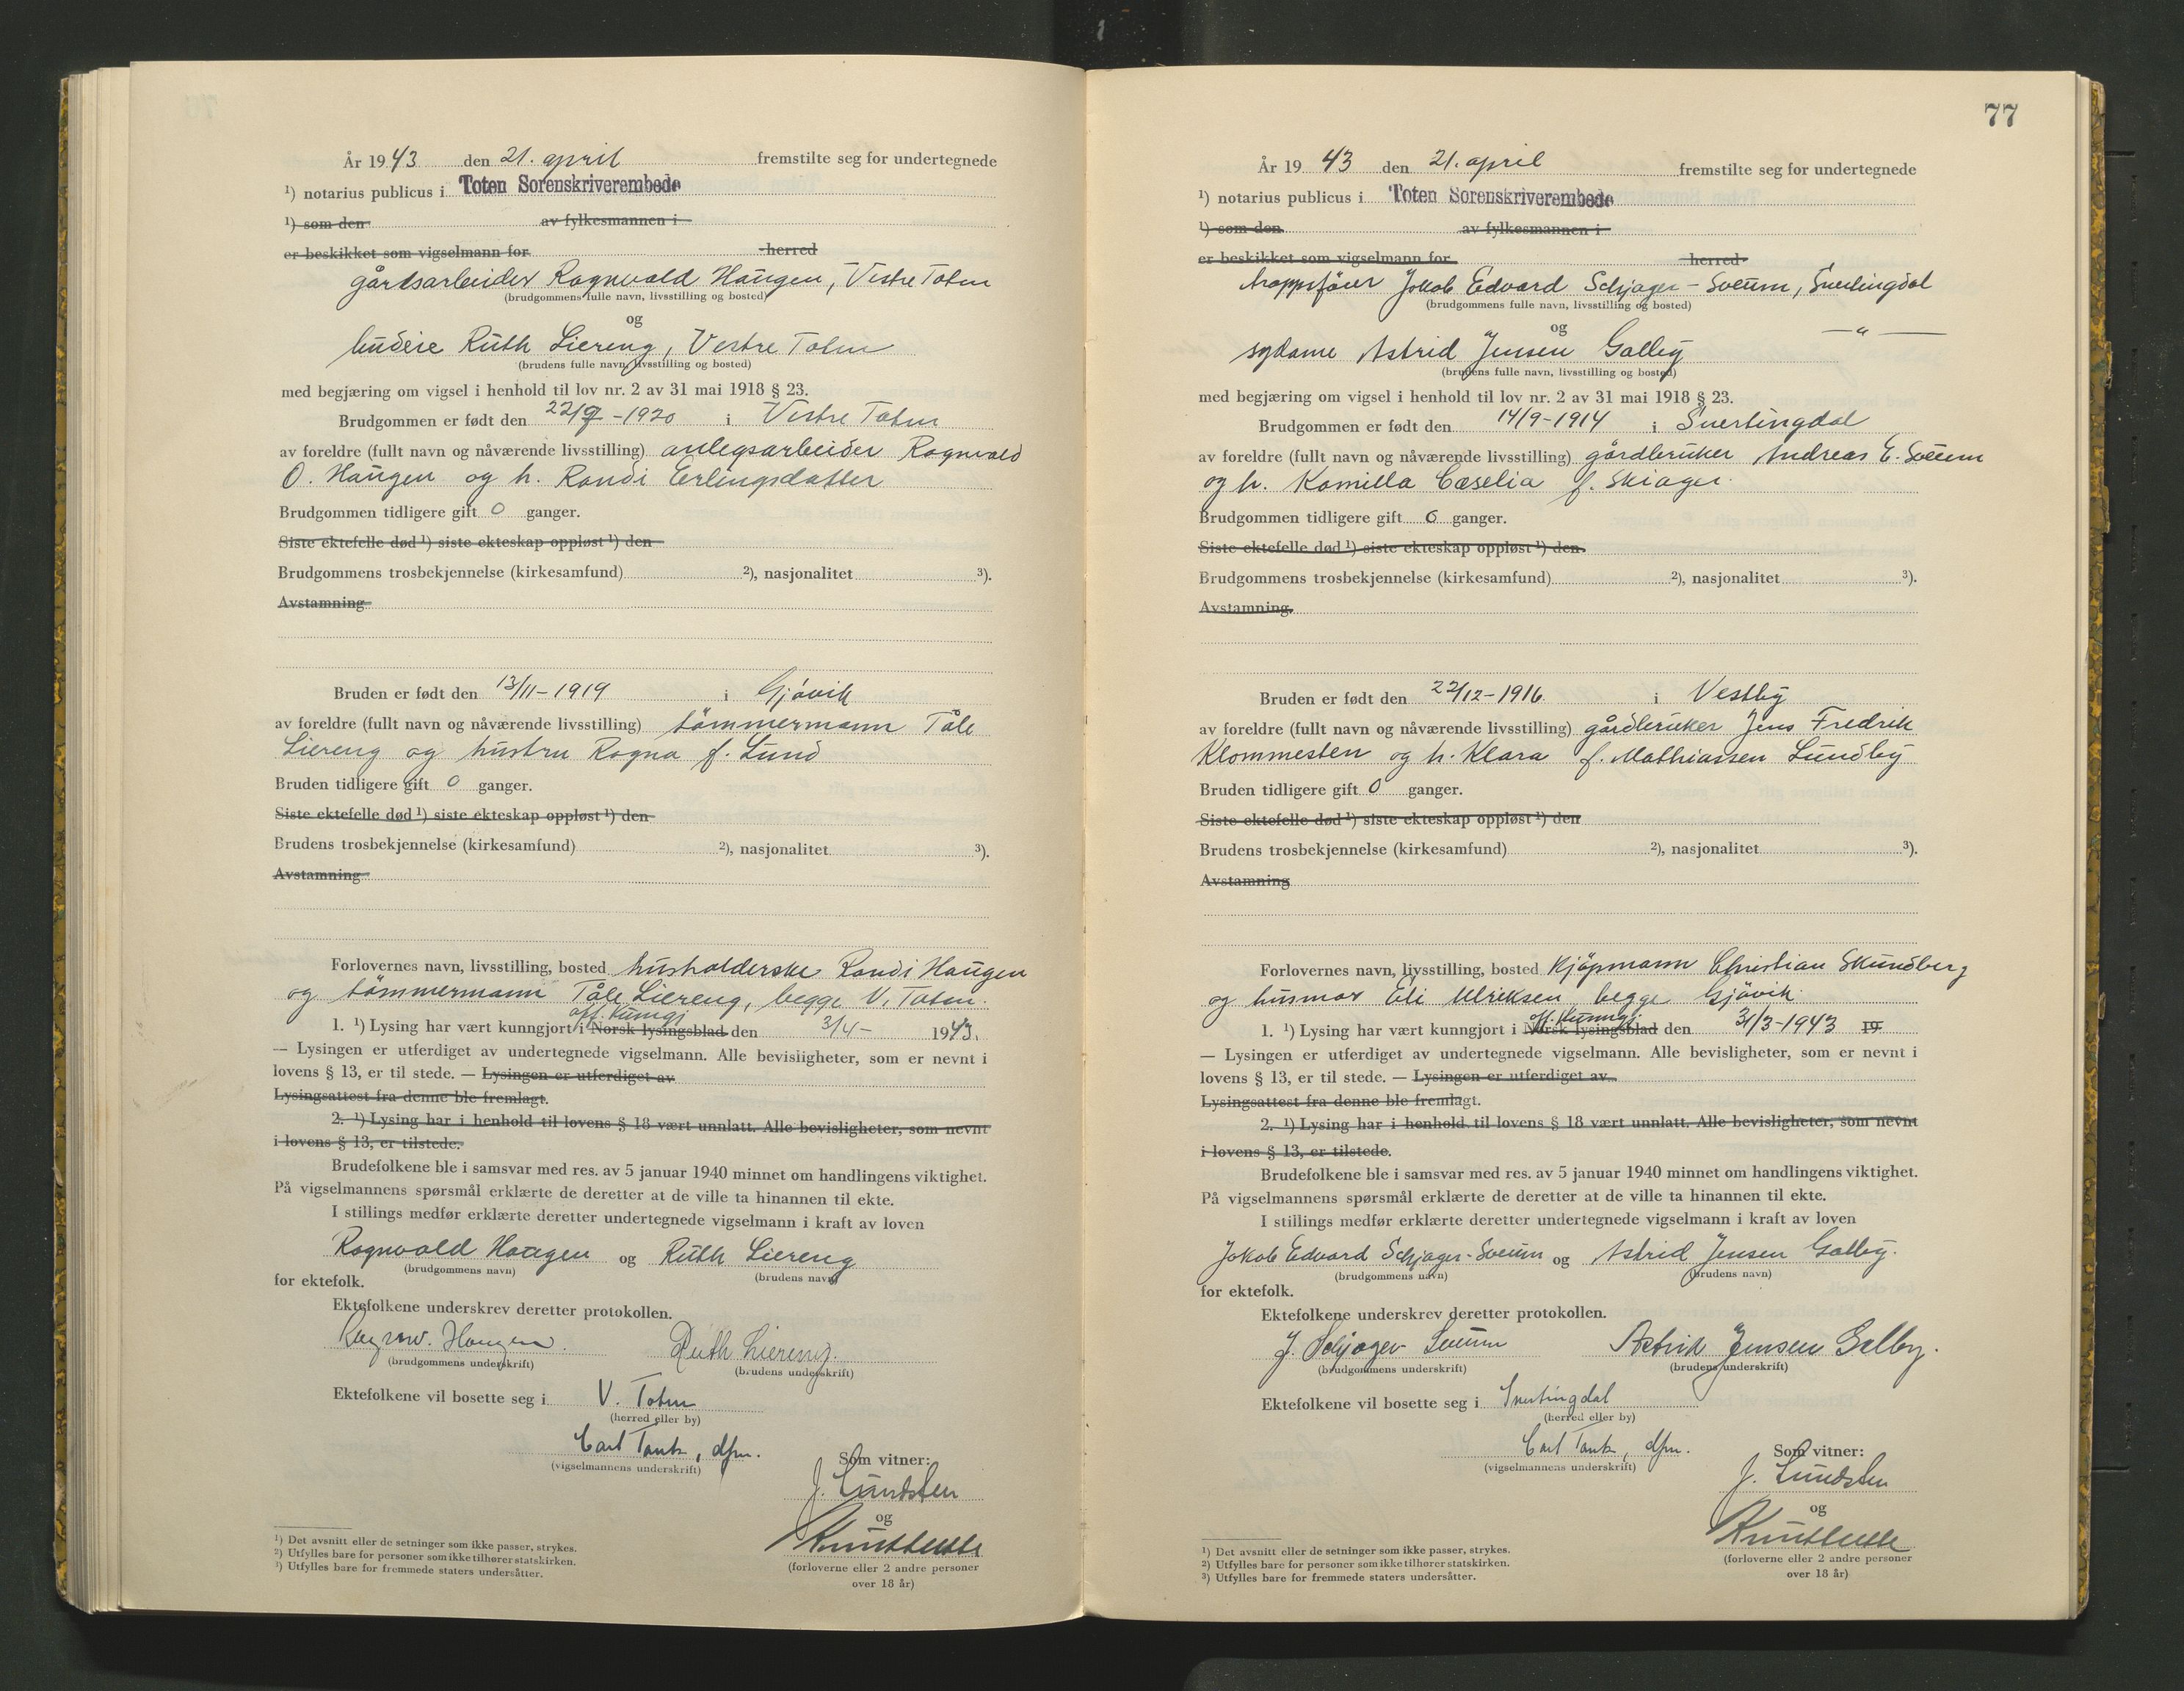 År 1943 den 21. april fremstilte seg for undertegnede
¹) notarius publicus i Toten Sorenskriverembede
¹) som den av fylkesmannen i
er beskikket som vigselmann for herred
gårdsarbeider Ragnvald Haugen, Vestre Toten
(brudgommens fulle navn, livsstilling og bosted)
og
budeie Ruth Liereng, Vestre Toten
(brudens fulle navn, livsstilling og bosted)
med begjæring om vigsel i henhold til lov nr. 2 av 31 mai 1918 § 23.
Brudgommen er født den 22/9-1920 i Vestre Toten
av foreldre (fullt navn og nåværende livsstilling) anlegsarbeider Ragnvald
O. Haugen og h. Randi Erlingsdatter
Brudgommen tidligere gift 0 ganger.
Siste ektefelle død ¹) siste ekteskap oppløst ¹) den
Brudgommens trosbekjennelse (kirkesamfund) ²), nasjonalitet ³).
Avstamning
Bruden er født den 13/11-1919 i Gjövik
av foreldre (fullt navn og nåværende livsstilling) tömmermann Tåle
Liereng og hustru Ragna f. Lund
Bruden tidligere gift 0 ganger.
Siste ektefelle død ¹) siste ekteskap oppløst ¹) den
Brudens trosbekjennelse (kirkesamfund) ²), nasjonalitet ³).
Avstamning
Forlovernes navn, livsstilling, bosted husholderske Randi Haugen
og tömmermann Tåle Liereng, begge V. Toten.
off. kunngj
1. ¹) Lysing har vært kunngjort i Norsk lysingsblad den 3/4- 1943.
— Lysingen er utferdiget av undertegnede vigselmann. Alle bevisligheter, som er nevnt i
lovens § 13, er til stede. — Lysingen er utferdiget av
Lysingsattest fra denne ble fremlagt.
2. ¹) Lysing har i henhold til lovens § 18 vært unnlatt. Alle bevisligheter, som nevnt
i lovens § 13, er tilstede.
Brudefolkene ble i samsvar med res. av 5 januar 1940 minnet om handlingens viktighet.
På vigselmannens spørsmål erklærte de deretter at de ville ta hinannen til ekte.
I stillings medfør erklærte deretter undertegnede vigselmann i kraft av loven
Ragnvald Haugen og Ruth Liereng
(brudgommens navn) (brudens navn)
for ektefolk.
Ektefolkene underskrev deretter protokollen.
Ragnv. Haugen. Ruth Liereng.
(brudgommens underskrift) (brudens underskrift)
Ektefolkene vil bosette seg i V. Toten
(herred eller by)
Carl Tank, dfm.
(vigselmannens underskrift)
Som vitner:
J. Lundsten
og
(forloverne eller 2 andre personer
over 18 år)
¹) Det avsnitt eller de setninger som ikke passer, strykes.
²) Utfylles bare for personer som ikke tilhører statskirken.
³) Utfylles bare for fremmede staters undersåtter.
77
År 1943 den 21. april fremstilte seg for undertegnede
¹) notarius publicus i Toten Sorenskriverembede
¹) som den av fylkesmannen i
er beskikket som vigselmann for herred
troppsfører Jakob Edvard Schjager-Sveum, Snertingdal
(brudgommens fulle navn, livsstilling og bosted)
og
sydame Astrid Jensen Galby —"—
(brudens fulle navn, livsstilling og bosted)
med begjæring om vigsel i henhold til lov nr. 2 av 31 mai 1918 § 23.
Brudgommen er født den 14/9-1914 i Snertingdal
av foreldre (fullt navn og nåværende livsstilling) gårdbruker Andreas E. Sveum
og h. Kamilla Cæselia f. Skiager.
Brudgommen tidligere gift 0 ganger.
Siste ektefelle død ¹) siste ekteskap oppløst ¹) den
Brudgommens trosbekjennelse (kirkesamfund) ²), nasjonalitet ³).
Avstamning
Bruden er født den 22/12-1916 i Vestby
av foreldre (fullt navn og nåværende livsstilling) gårdbruker Jens Fredrik
Klommesten og h. Klara f. Mathiassen Lundby
Bruden tidligere gift 0 ganger.
Siste ektefelle død ¹) siste ekteskap oppløst ¹) den
Brudens trosbekjennelse (kirkesamfund) ²), nasjonalitet ³).
Avstamning
Forlovernes navn, livsstilling, bosted kjöpmann Christian Skundberg
og husmor Eli Ulriksen, begge Gjövik.
off. kunngj.
1. ¹) Lysing har vært kunngjort i Norsk lysingsblad den 31/3-1943 19
— Lysingen er utferdiget av undertegnede vigselmann. Alle bevisligheter, som er nevnt i
lovens § 13, er til stede. — Lysingen er utferdiget av
Lysingsattest fra denne ble fremlagt.
2. ¹) Lysing har i henhold til lovens § 18 vært unnlatt. Alle bevisligheter, som nevnt
i lovens § 13, er tilstede.
Brudefolkene ble i samsvar med res. av 5 januar 1940 minnet om handlingens viktighet.
På vigselmannens spørsmål erklærte de deretter at de ville ta hinannen til ekte.
I stillings medfør erklærte deretter undertegnede vigselmann i kraft av loven
Jakob Edvard Schjager-Sveum og Astrid Jensen Galby.
(brudgommens navn) (brudens navn)
for ektefolk.
Ektefolkene underskrev deretter protokollen.
J. Schjager Sveum Astrid Jensen Galby.
(brudgommens underskrift) (brudens underskrift)
Ektefolkene vil bosette seg i Snertingdal
(herred eller by)
Carl Tank, dfm.
(vigselmannens underskrift)
Som vitner:
J. Lundsten
og
(forloverne eller 2 andre personer
over 18 år)
¹) Det avsnitt eller de setninger som ikke passer, strykes.
²) Utfylles bare for personer som ikke tilhører statskirken.
³) Utfylles bare for fremmede staters undersåtter.